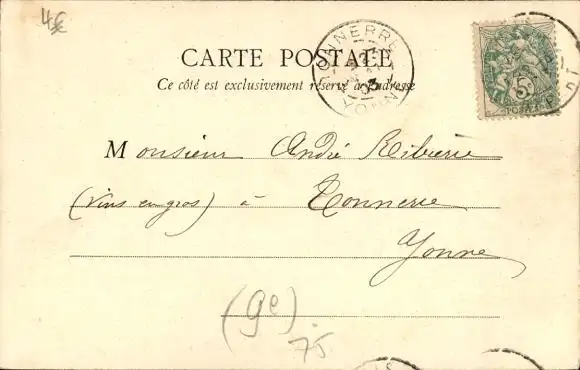 4€
CARTE POSTALE
Ce côté est exclusivement réservé à l'adresse
TONNERRE
YONNE
5
POSTES
Monsieur André Ribière
(vins en gros) à Tonnerre
Yonne
(9e)
75